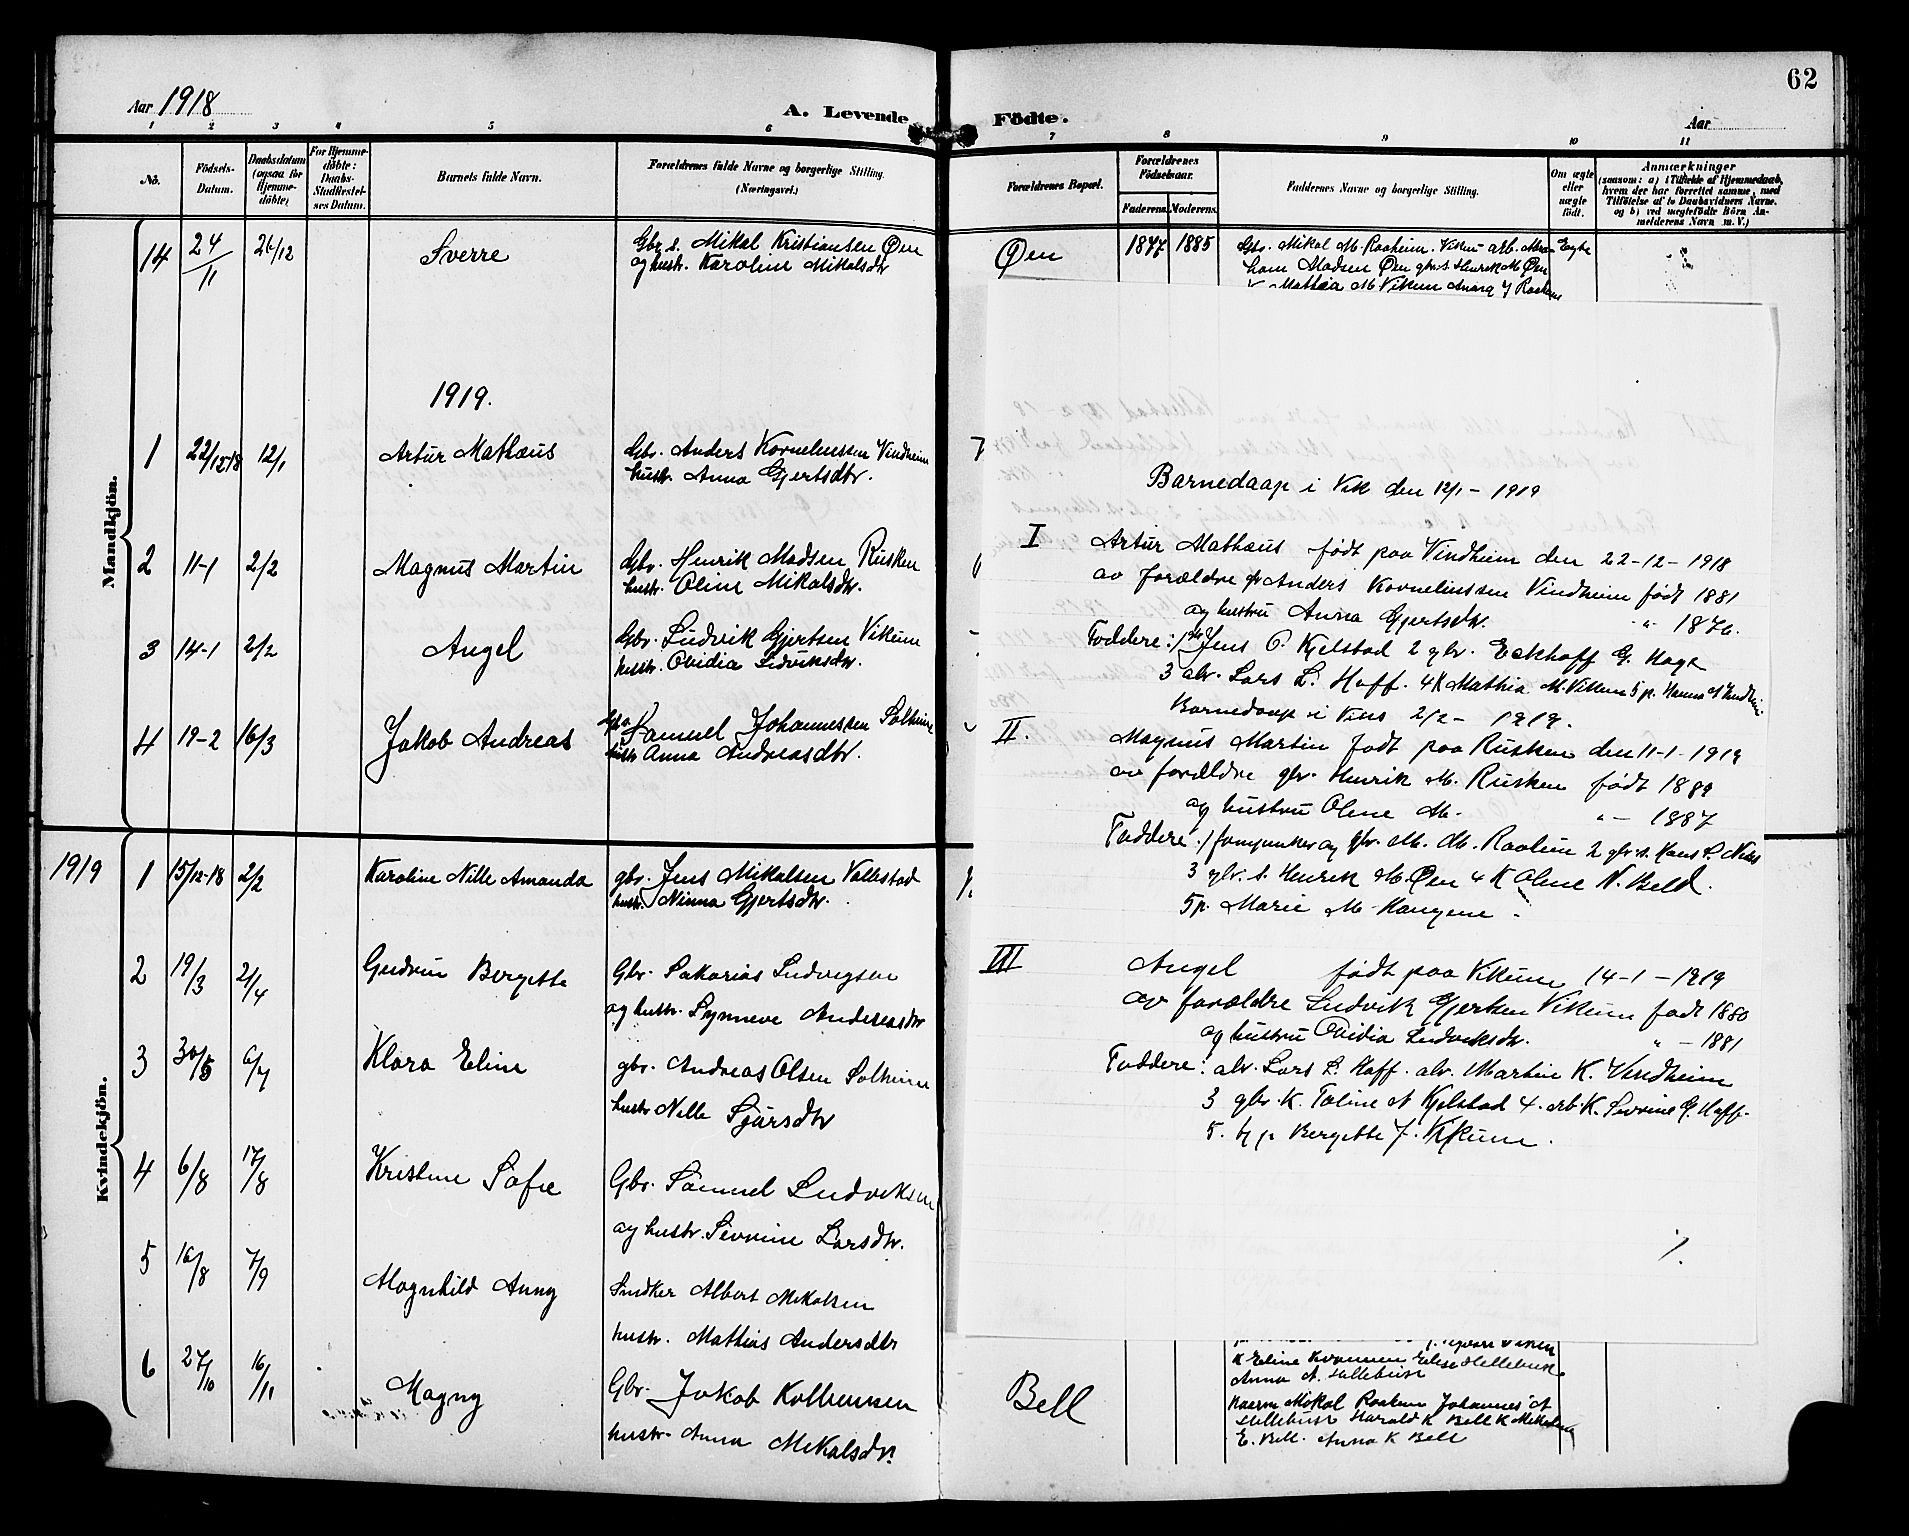 62
Aar 1918
A. Levende
Födte.
Aar
1 2 3 4 5 6 7 8 9 10 11
No.
Födsels-Datum.
Daabsdatum (ogsaa for Hjemmedöbte)
For Hjemmedöbte: Daabs-Stadfæstelses Datum.
Barnets fulde Navn.
Forældrenes fulde Navne og borgerlige Stilling. (Næringsvei.)
Forældrenes Bopæl.
Forældrenes Födselsaar.
Faderens. Moderens.
Faddernes Navne og borgerlige Stilling.
Om ægte eller uægte födt.
Anmærkninger
(saasom: a) i Tilfælde af Hjemmedaab,
hvem der har forrettet samme, med
Tilföielse af to Daabsvidners Navne.
og b) ved uegtefödte Börn An-
melderens Navn m. V.)
Mandkjön.
14 24/11 26/12 Sverre Gbr. s. Mikal Kristiansen Øen
og hustr. Karoline Mikalsdtr
Øen 1877 1885 Gbr. Mikal M. Raaheim. Vikum arb.
Madsen Øen gbr. s. Henrik M Øen
Mathea M Vikum
Ægte
1919.
1 22/12 18 12/1 Artur Mathæus Gbr. Anders Korneliussen Vindheim
hustr. Anna Gjertsdtr.
2 11-1 2/2 Magnus Martin Gbr. Henrik Madsen Rusken
hustr. Oline Mikalsdtr.
3 14-1 2/2 Angel Gbr. Ludvik Gjertsen Vikum
hustr. Ovidia Ludviksdtr.
4 19-2 16/3 Jakob Andreas Gbr. Samuel Johannessen Solheim
hustr Anna Andreasdtr.
Kvindekjön.
1919 1 15/12-18 2/2 Karoline Nille Amanda gbr. Jens Mikalsen Vallestad
hustr. Ninna Gjertsdtr.
2 19/3 21/4 Gudrun Bergette Gbr. Sakarias Ludvigsen
og hustr. Synneve Andreasdtr
3 30/5 6/7 Klara Eline gbr. Andreas Olsen Solheim
hustr Nille Sjursdtr
4 6/8 17/8 Kristine Sofie Gbr. Samuel Ludviksen
og hustr. Sevrine Larsdtr.
5 16/8 7/9 Magnhild Anny Snedker Albert Mikalsen
hustr. Mathias Andersdtr
6 27/10 16/11 Magny Gbr. Jakob Kolbeinsen
hustr. Anna Mikalsdtr.
Barnedaap i Vik den 12/1 - 1919
I Artur Mathæus født paa Vindheim den 22-12-1918
av forældre gbr Anders Korneliussen Vindheim født 1881
og hustru Anna Gjertsdtr. " - 1876.
Faddere: 1 Jens O. Kjelstad 2 gbr. Eckhoff G. Hage
3 alr. Lars L. Hoff. 4 K Mathia M. Vikum 5 p. Hanna A Vindheim
Barnedaap i Viks 2/2 - 1919.
II. Magnus Martin født paa Rusken den 11-1-1919
av forældre gbr. Henrik M. Rusken født 1889
og hustru Olene M. " - 1887
Faddere: 1 gbr. M. M. Raaheim 2 gbr. s. Hans P.
3 gbr. s. Henrik M. Øen 4 K Oline N. Bell.
5 p. Marie M
III Angel født paa Vikum 14-1-1919
av forældre Ludvik Gjertsen Vikum født 1880
og hustru Ovidia Ludviksdtr. " - 1881
Faddere: alr. Lars L. Hoff. alr. Martin K. Vindheim
3 gbr. K. Taline A Kjelstad 4. arb. K. Sevrine G. Hoff.
5. p. Bergette J. Vikum.
K Eline Elise Hellebust
Anna A. Hellebust
Bell
Mikal Johannes A
Hellebust Harald K Bell K
E. Bell. Anna K Bell